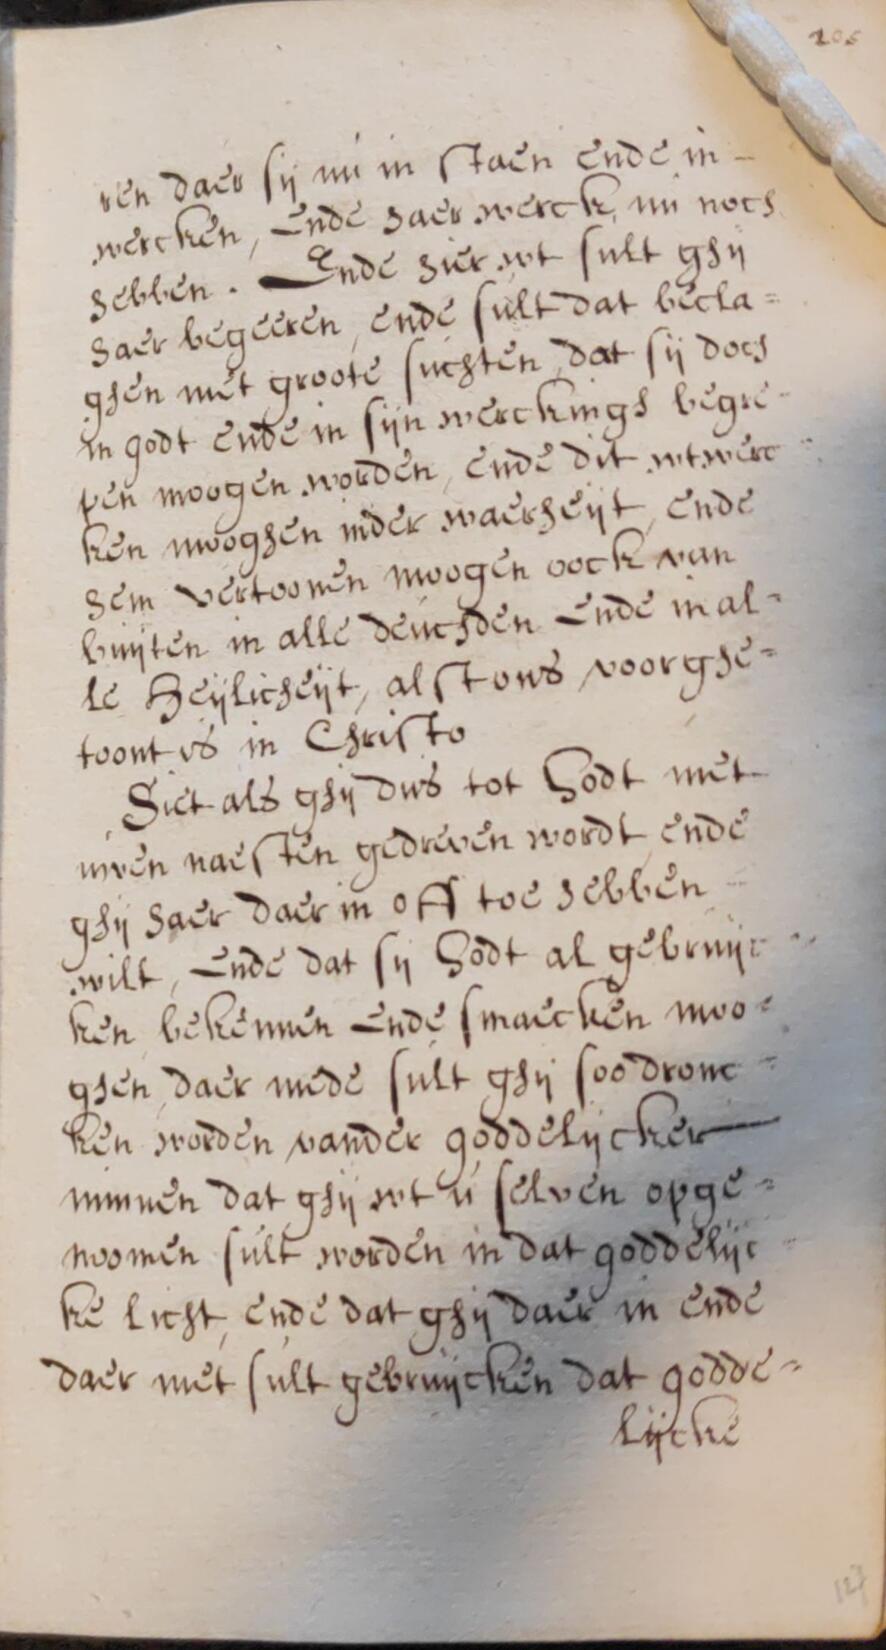 205
ren daer sij nu in staen ende in-
wercken, Ende haer werck, nu noch
hebben. Ende hier wt sult ghij
haer begeeren, ende sult dat becla=
ghen met groote suchten, dat sij doch
in godt ende in sijn werckingh begre-
pen moogen worden, ende dit wtwerc
ken mooghen inder waerheijt, ende
hem vertoonen moogen oock van
buijten in alle deuchden Ende in al-
le Heijlicheijt, alst ons voorghe=
toont is in Christo
Siet als ghij dus tot Godt met
uwen naesten gedreven wordt, ende
ghij haer daer in off toe hebben
wilt, Ende dat sij Godt al gebruijc
ken bekennen Ende smaecken moo=
ghen, daer mede sult ghij soo dronc=
ken worden vander goddelijcker
minnen dat ghij wt u selven opge=
noomen sult worden in dat goddelijc
ke licht, ende dat ghij daer in ende
daer met sult gebruijcken dat godde=
lijcke
127